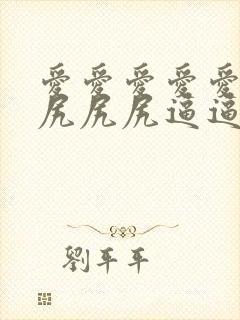 愛愛愛愛愛
尻尻尻逼逼
劉平平